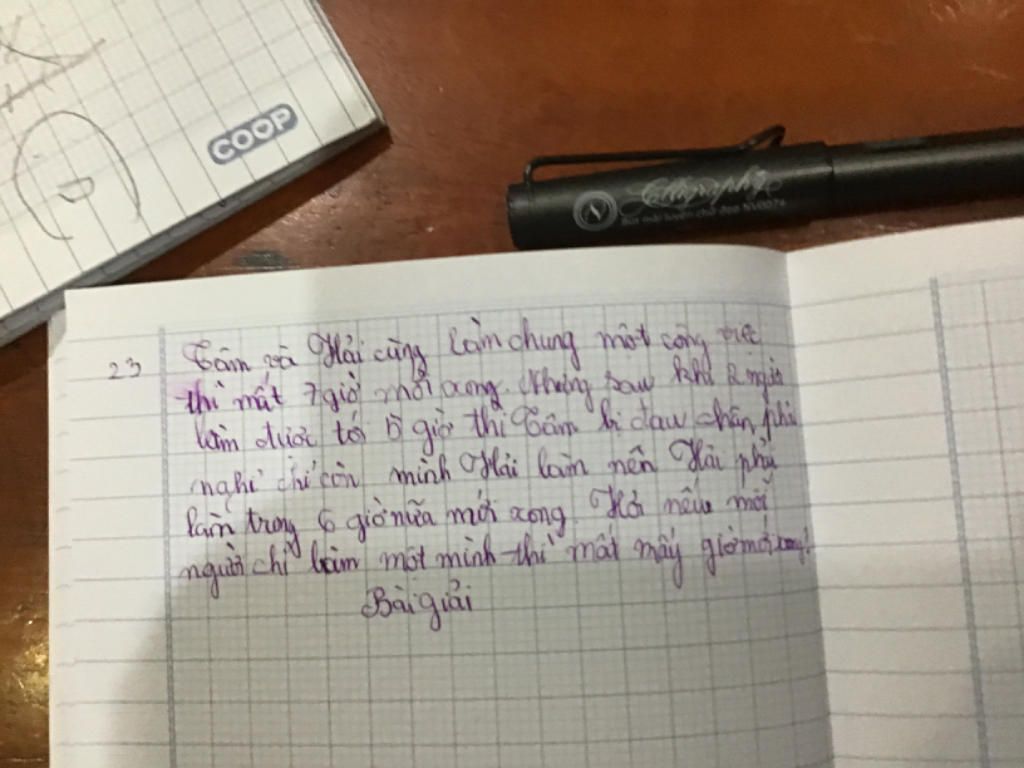 COOP
Calligraphy
Bút mài luyện chữ đẹp
23
Tâm và Hải cùng làm chung một công việc
thì mất 7 giờ mới xong. Nhưng sau khi 2 người
làm được tới 5 giờ thì Tâm bị đau chân, phải
nghỉ chỉ còn mình Hải làm nên Hải phải
làm trong 6 giờ nữa mới xong. Hỏi nếu mỗi
người chỉ làm một mình thì mất mấy giờ mới xong?
Bài giải